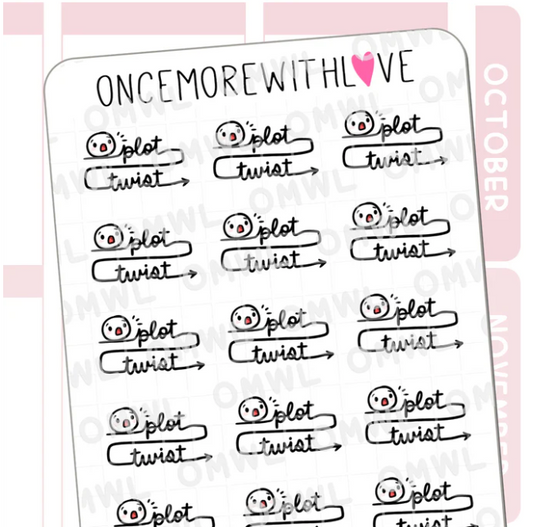 ONCEMOREWITHLOVE
plot plot plot
twist twist twist
plot plot plot
twist twist twist
plot plot plot
twist twist twist
plot plot plot
twist twist twist
plot plot plot
twist
OCTOBER
NOVEMBER
OMWL